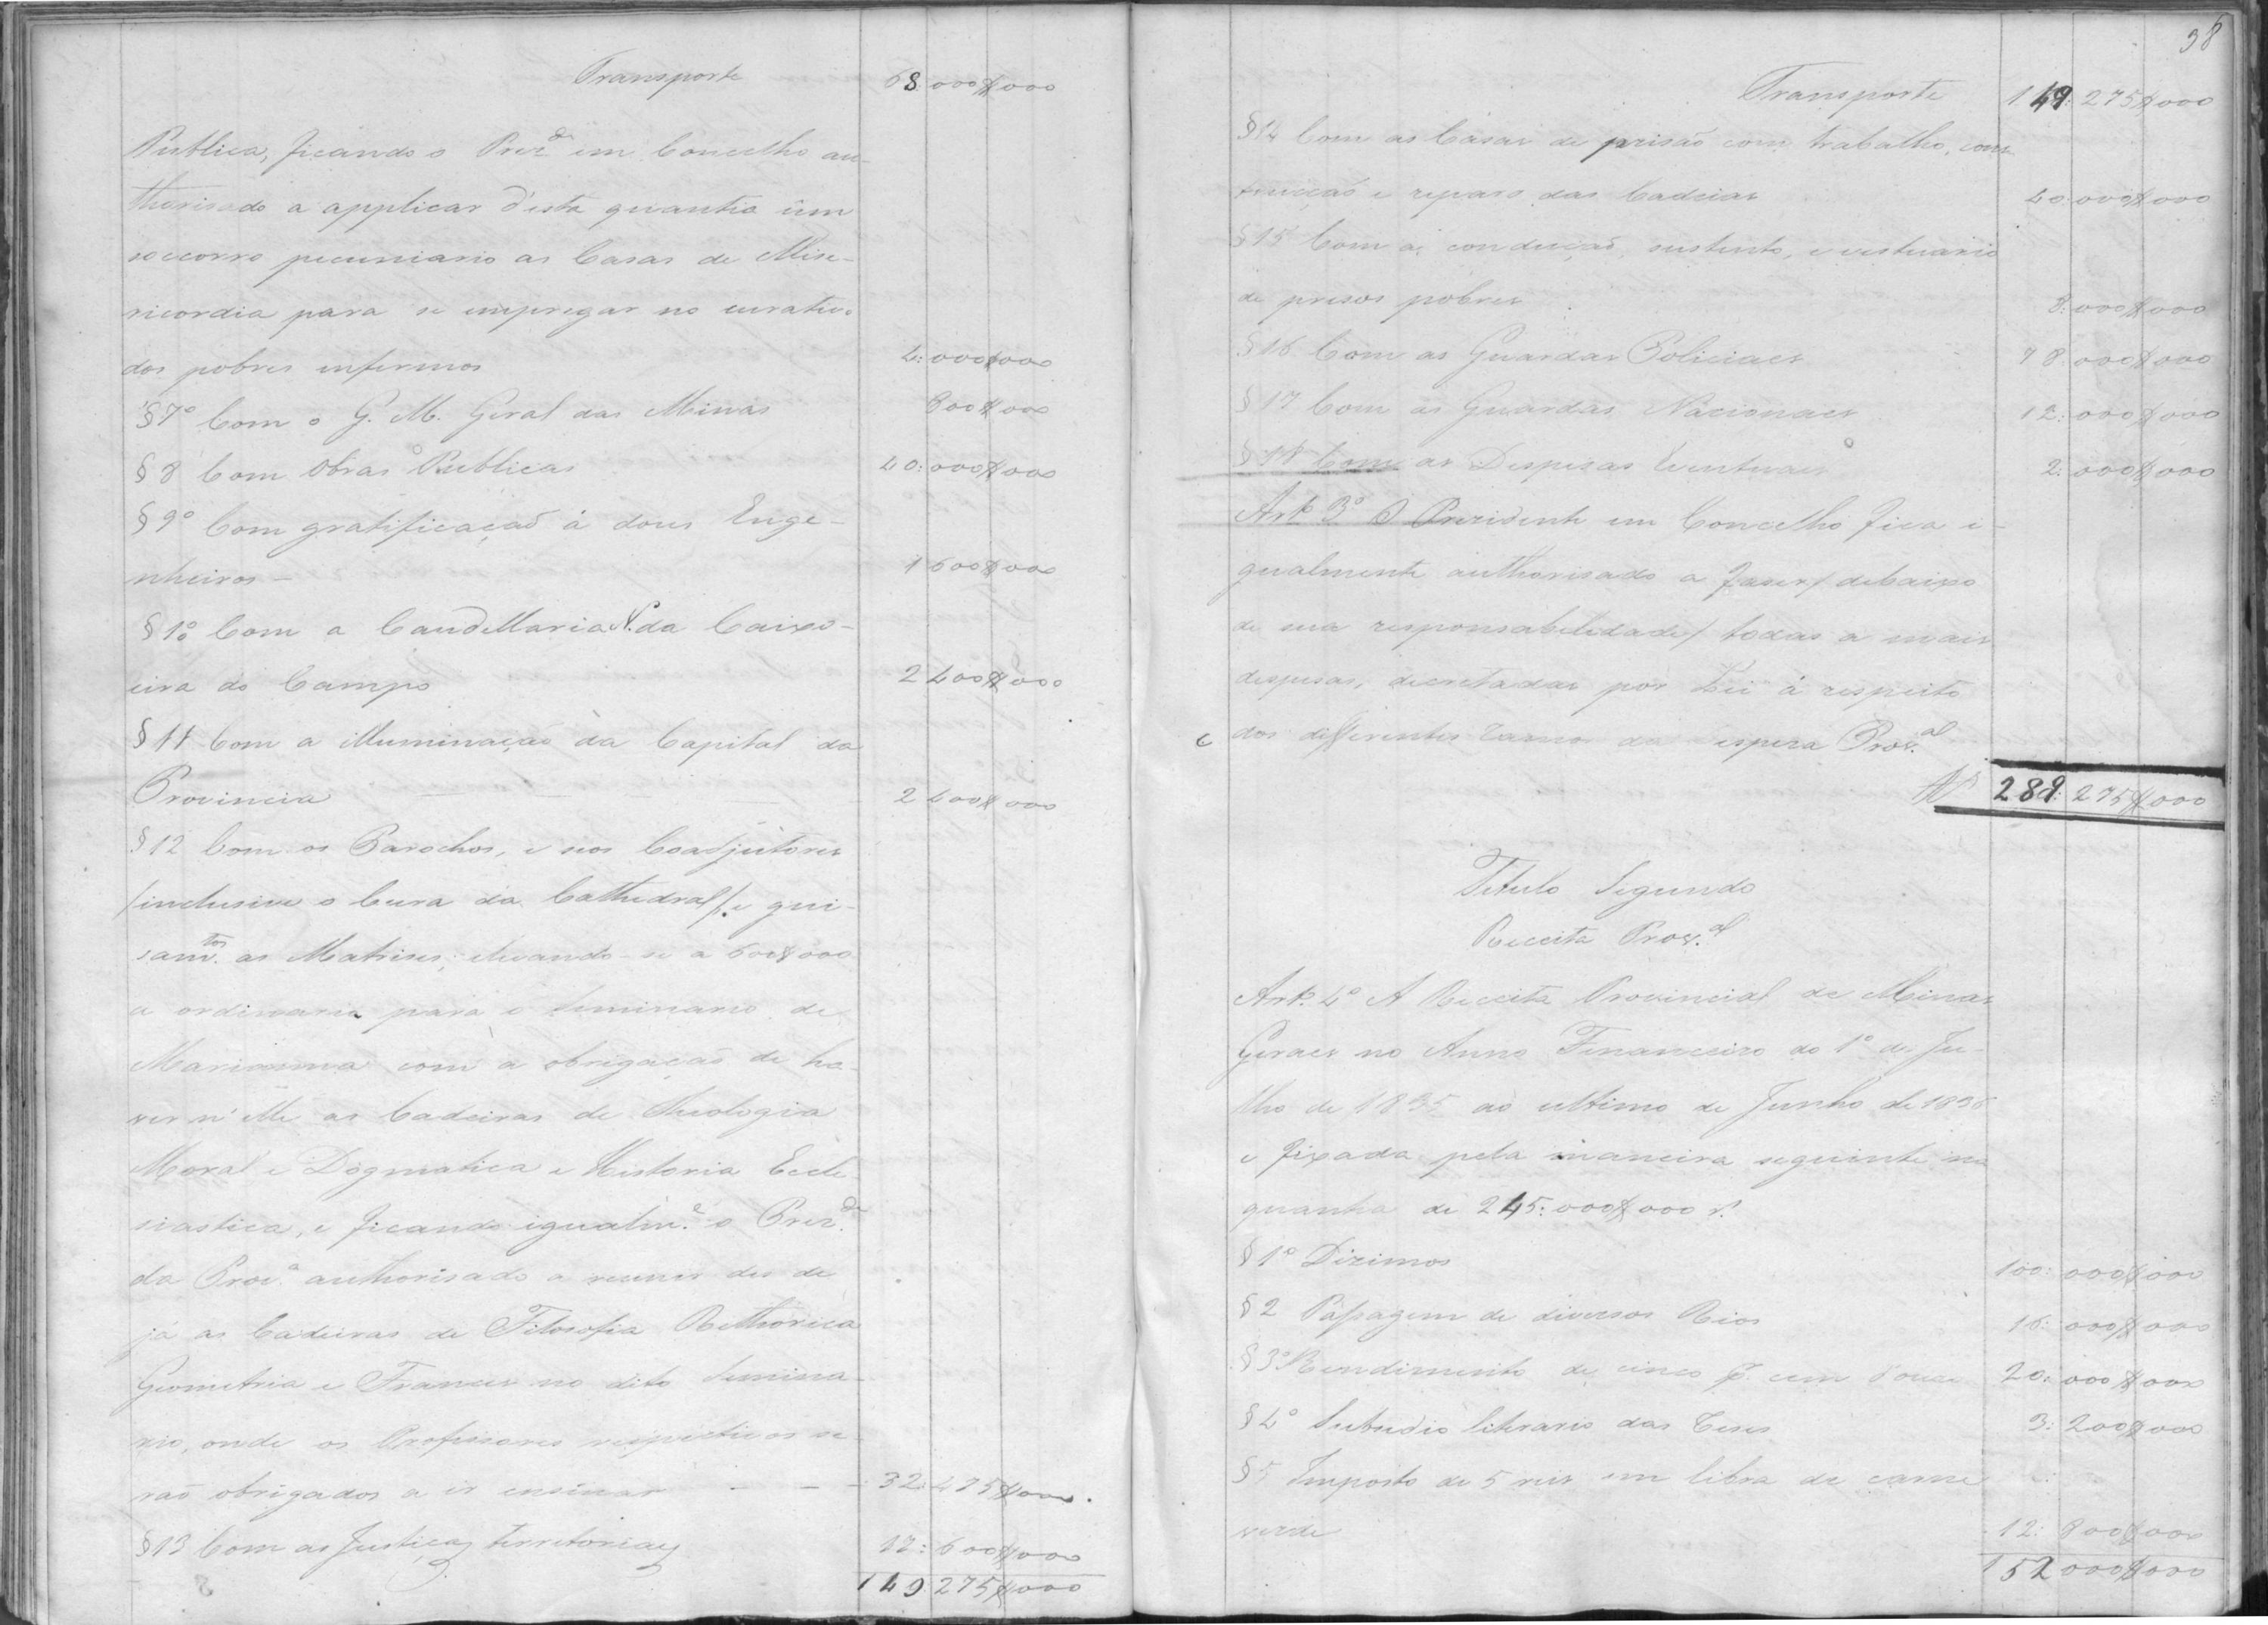 Transporte 68:000$000
Publica, ficando o Prez.de em Concelho au-
thorisado a applicar d'esta quantia um
soccorro pecuniario as Casas de Mise-
ricordia para se empregar no curativo
dos pobres enfermos 4:000$000
§7º Com o G. M. Geral das Minas 800$000
§8º Com Obras Publicas 40:000$000
§9º Com gratificação á dous Enge-
nheiros - 1600$000
§10 Com a Caudellaria N. da Caixo-
eira do Campo 2400$000
§11 Com a illuminação da Capital da
Provincia 2400$000
§12 Com os Parochos, e seos Coadjutores
/inclusive o Cura da Cathedral/, e gui-
sam.tos as Matrises; elevando-se a 600$000
a ordinaria para o Seminario de
Marianna com a obrigação de ha-
ver n'elle as Cadeiras de Theologia
Moral e Dogmatica e Historia Eccle-
siastica, e ficando igualm.e o Prez.de
da Prov.a authorisado a reunir des de
já as Cadeiras de Filosofia Rethorica
Geometria e Francez no dito Semina-
rio, onde os Professores respectivos se-
rão obrigados a ir ensinar - - - 32:475$000.
§13 Com as Justiças territoriaes 12:600$000
149:275$000
38
Transporte 149:275$000
§14 Com as Casas de prisão com trabalho, cons-
trucção e reparo das Cadeias 40:000$000
§15 Com a conducção, sustento, e vestuario
de presos pobres 8:000$000
§16 Com as Guardas Policiaes 78:000$000
§17 Com as Guardas Nacionaes 12:000$000
§18 Com as Despesas Eventuaes 2:000$000
Artº 3º O Prezidente em Concelho fica i-
gualmente authorisado a faser /debaixo
de sua responsabelidade/ todas a mais
despesas, decretadas por Lei á respeito
dos differentes ramos da espesa Prov.al
289:275$000
Titulo Segundo
Receita Prov.al
Artº 4º A Receita Provincial de Minas
Geraes no Anno Financeiro do 1º de Ju-
lho de 1835 ao ultimo de Junho de 1836
é fixada pela maneira seguinte na
quantia de 245:000$000 r.s
§1º Dizimos 100:000$000
§2 Passagem de diversos Rios 16:000$000
§3º Rendimento de cinco p. cem d'ouro 20:000$000
§4º Subsidio literario das Reses 3:200$000
§5 Imposto de 5 reis em libra de carne
verde 12:800$000
152000$000